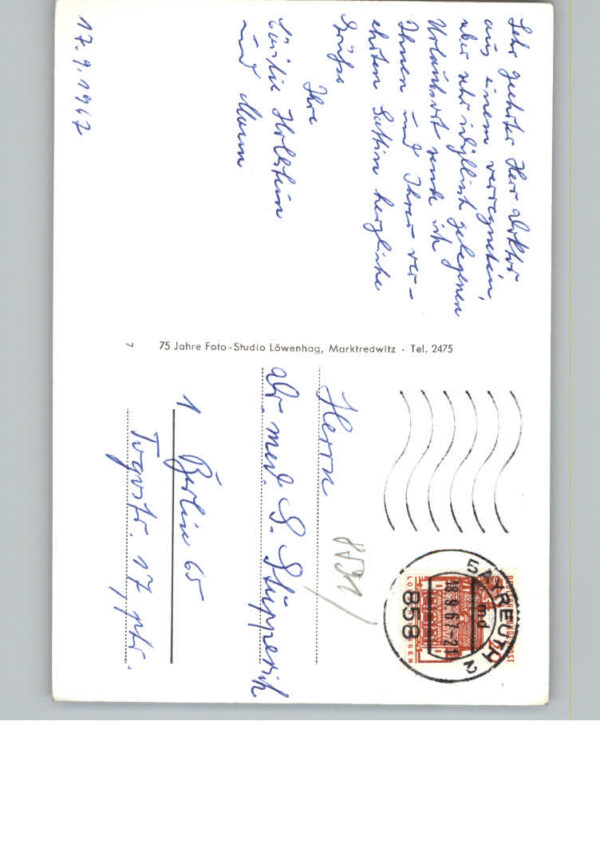 Sehr geehrter Herr Doktor
aus einem verregneten,
aber sehr idyllisch gelegenen
Urlaubsort sende ich
Ihnen und Ihrer ver-
ehrten Gattin herzliche
Grüße
Ihre
Hollstein
und Mann
17.9.1967
75 Jahre Foto-Studio Löwenhag, Marktredwitz · Tel. 2475
7
Herrn
Dr. med. S. Stüpperich
1 Berlin 65
Togostr. 17, ptr.
8591/
BAYREUTH 2
md
18.9.67-21
858